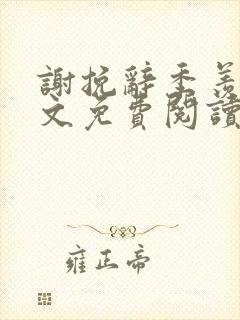 謝挽辭季羨
文免費閱讀
雍正帝